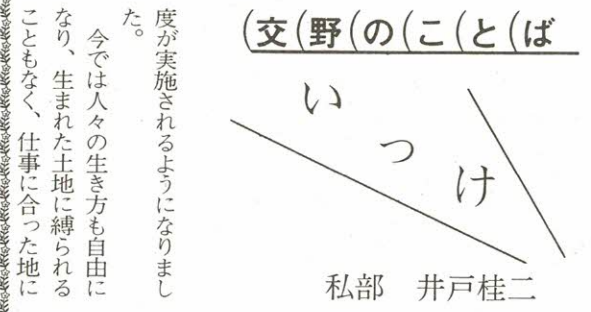 交野のことば
いっけ
私部 井戸桂二
度が実施されるようになりまし
た。
今では人々の生き方も自由に
なり、生まれた土地に縛られる
こともなく、仕事に合った地に